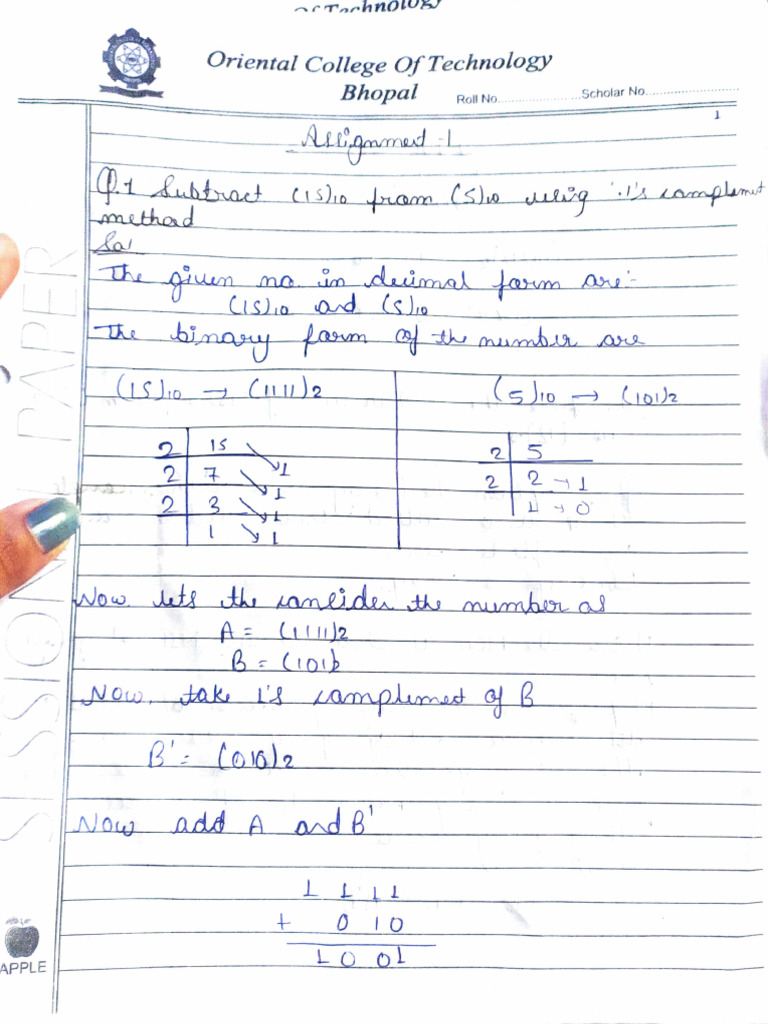 Of Technology
Oriental College Of Technology
Bhopal Roll No. Scholar No.
1
Assignment - 1
Q.1 Subtract (15)10 from (5)10 using 1's complement
method
Sol
The given no. in decimal form are:-
(15)10 and (5)10
The binary form of the number are
(15)10 → (1111)2 (5)10 → (101)2
2 15 2 5
2 7 1 2 2 → 1
2 3 1 1 → 0
1
1 1
Now lets the consider the number as
A = (1111)2
B = (101)2
Now, take 1's complement of B
B' = (010)2
Now add A and B'
1 1 1 1
+ 0 1 0
1 0 0 1
APPLE